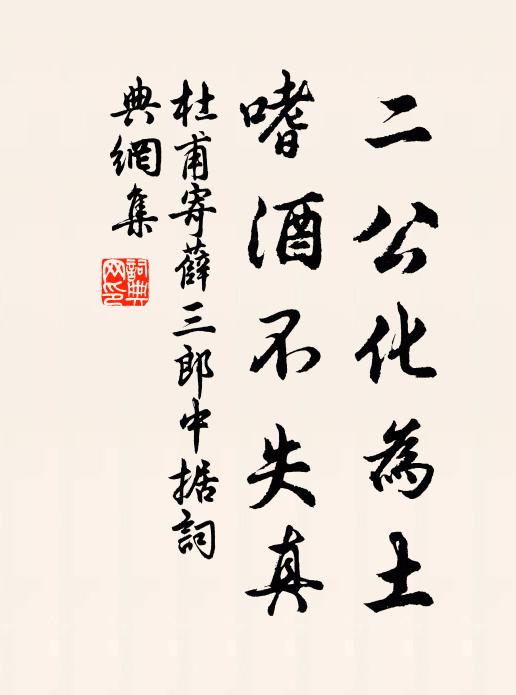 二公化為土
嗜酒不失真
杜甫寄薛三郎中据詞
典網集
詞典
网印